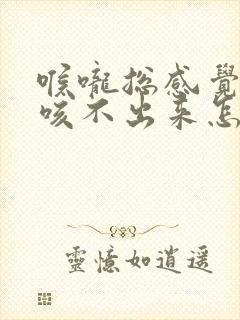 喉嚨總感覺
咳不出來怎
靈憶如逍遥